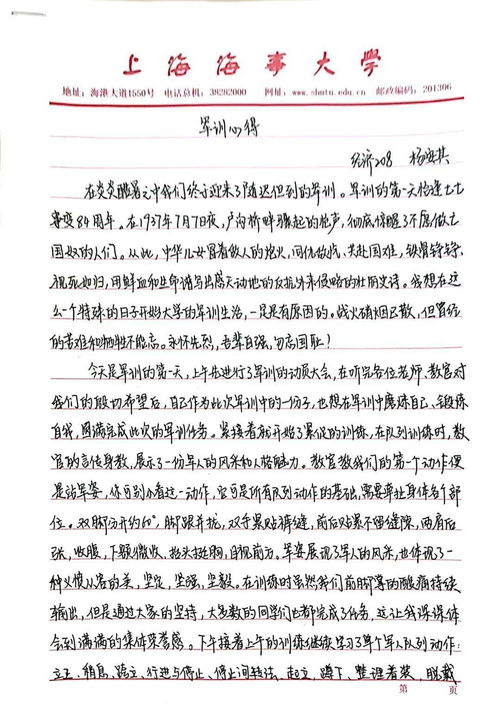 上海海事大学
地址：海港大道1550号 电话总机：38282000 网址：www.shmtu.edu.cn 邮政编码：201306
军训心得
经济208 杨安其
在炎炎酷暑之中我们终于迎来了随迟但到的军训。军训的第一天恰逢七七
事变84周年。在1937年7月7日夜，卢沟桥畔骤起的枪声，彻底惊醒了不愿做亡
国奴的人们。从此，中华儿女冒着敌人的炮火，同仇敌忾、共赴国难，铁骨铮铮、
视死如归，用鲜血和生命谱写出感天动地的反抗外来侵略的壮丽史诗。我想在这
么一个特殊的日子开始大学的军训生活，一定是有原因的。战火硝烟已散，但曾经
的苦难和牺牲不能忘。永怀先烈，吾辈自强，勿忘国耻！
今天是军训的第一天，上午先进行了军训的动员大会，在听完各位老师、教官对
我们的殷切希望后，自己作为此次军训中的一份子，也想在军训中磨练自己、锻炼
自我，圆满完成此次的军训任务。紧接着就开始了紧促的训练，在队列训练时，教
官的言传身教，展示了一份军人的风采和人格魅力。教官教我们的第一个动作便
是站军姿，你可别小看这一动作，它可是所有队列动作的基础，需要牵扯身体各个部
位。双脚分开约60°，脚跟并拢，双手紧贴裤缝，前后贴紧不留缝隙，两肩后
张，收腹，下颚微收，抬头挺胸，目视前方。军姿展现了军人的风采，也体现了一
种义愤从容的美，坚定，坚强，坚毅。在训练时虽然我们前脚掌的酸痛持续
输出，但是通过大家的坚持，大多数的同学们也都完成了任务，这让我深深体
会到满满的集体荣誉感。下午接着上午的训练继续学习了单个军人队列动作：
立正、稍息、跨立、行进与停止、停止间转法、起立、蹲下、整理着装、脱戴
第 页